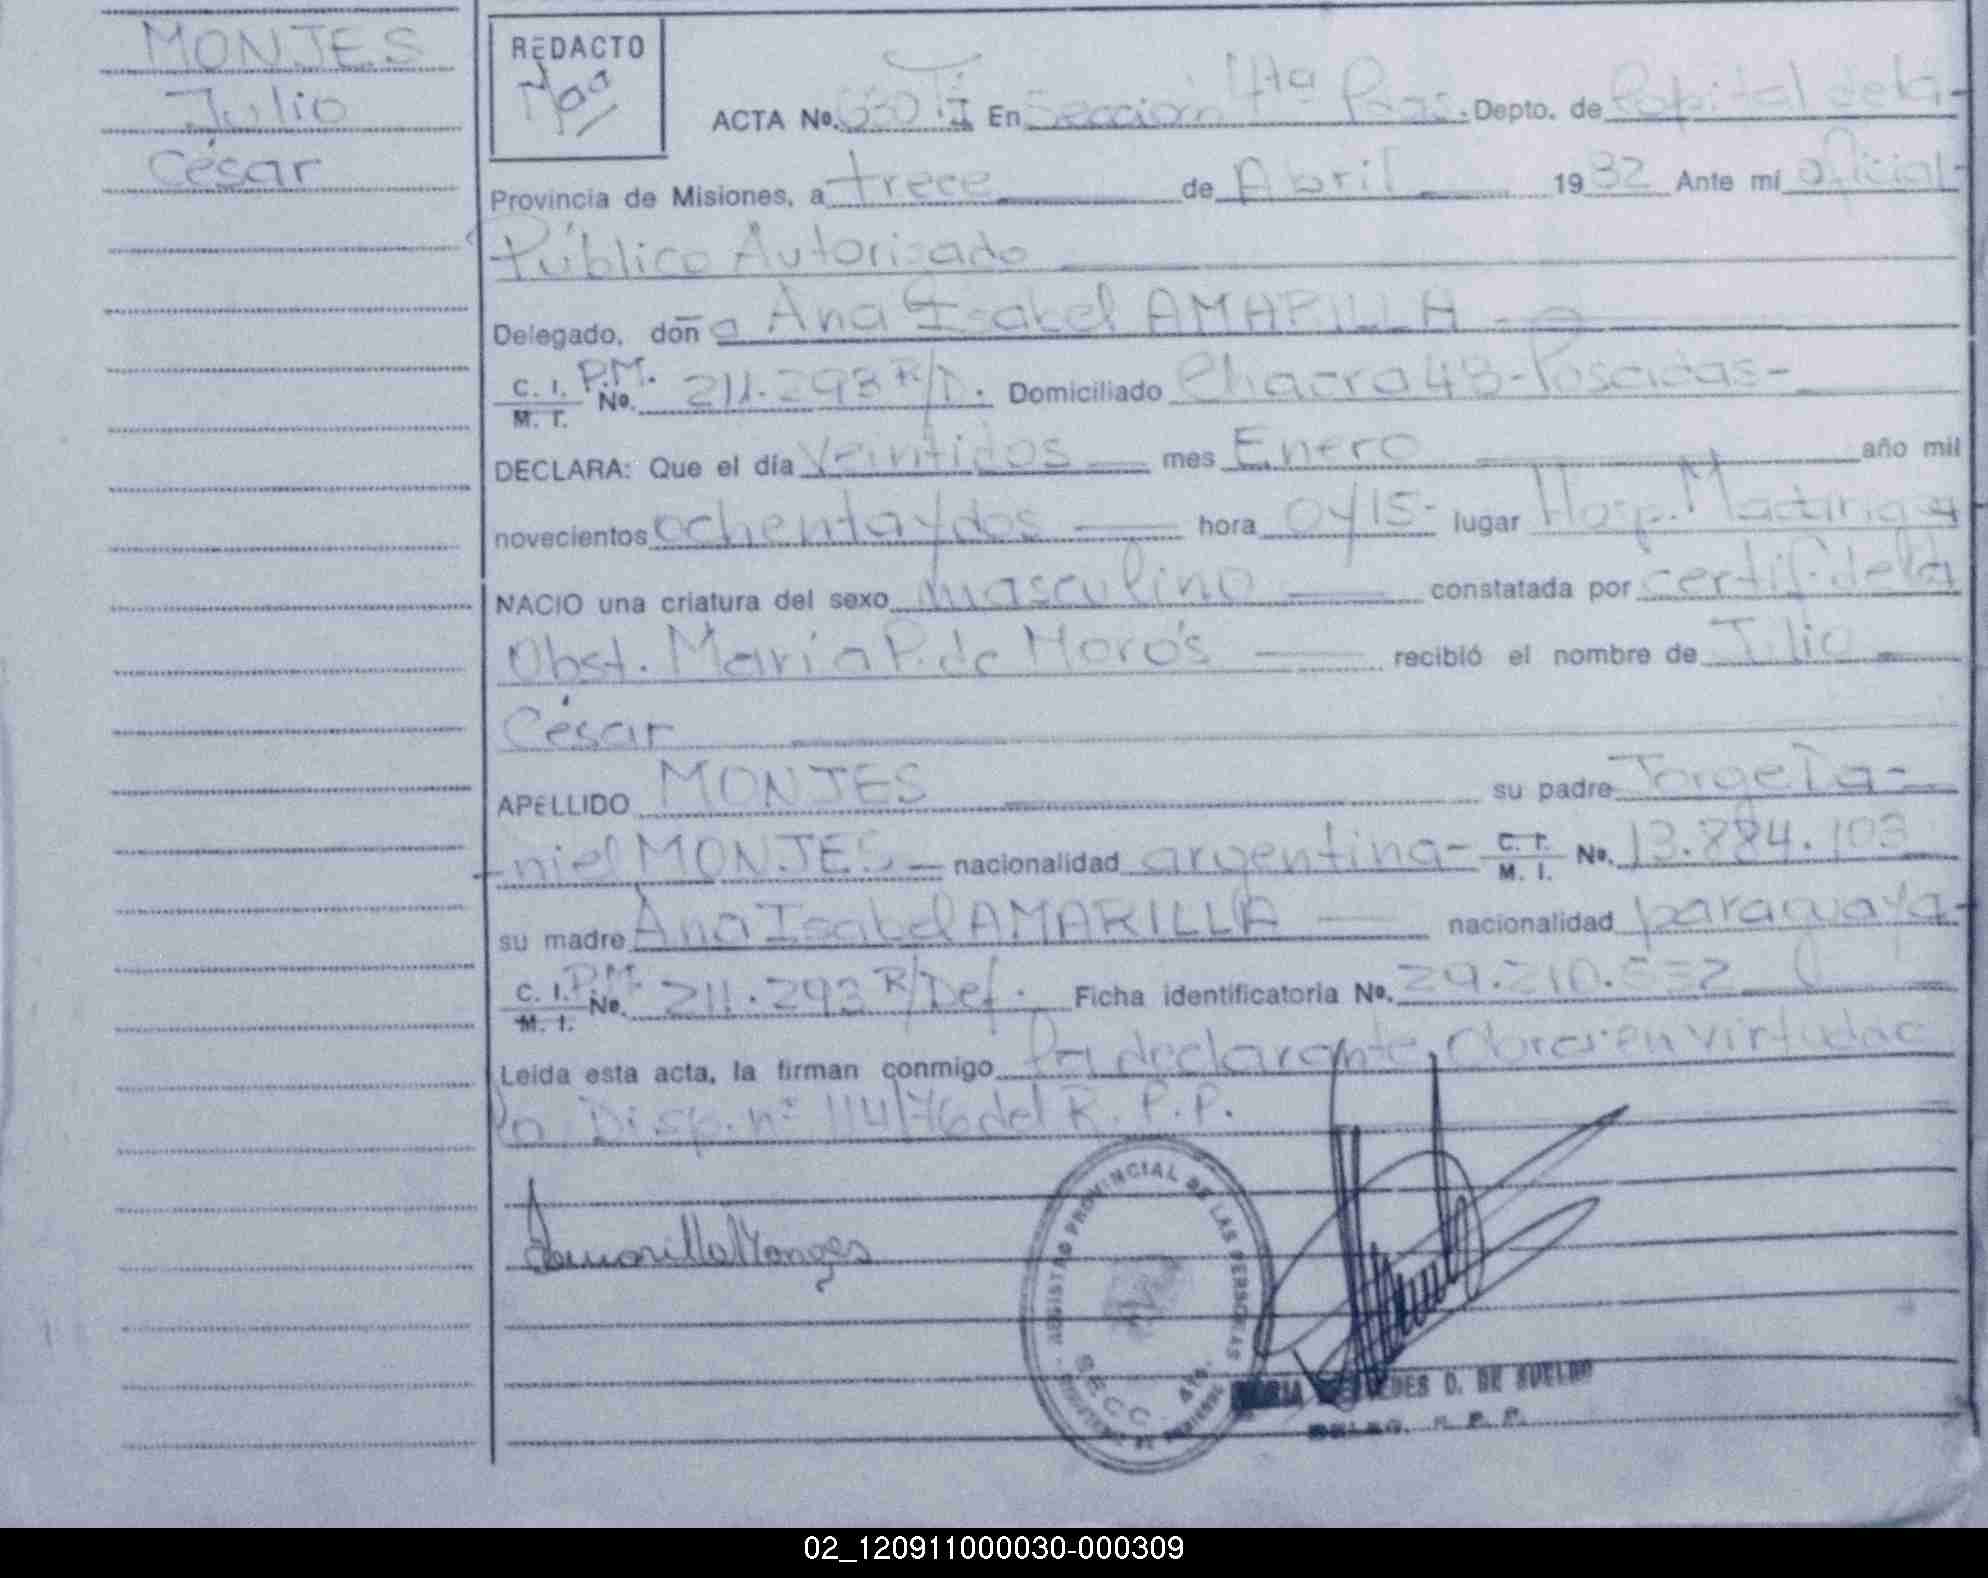 MONJES
Julio
César
REDACTO
ACTA No. 630 TI En Sección 4ta Pdas. Depto. de Capital de la
Provincia de Misiones, a trece de Abril 1982 Ante mí Oficial
Público Autorizado
Delegado, doña Ana Isabel AMARILLA
C. I. P.M. No. 211.293 R/D. Domiciliado Chacra 48-Posadas-
M. I.
DECLARA: Que el día veintidos mes Enero año mil
novecientos ochenta y dos hora 04/15- lugar Hosp. Madariaga
NACIO una criatura del sexo masculino constatada por certif. de la
Obst. María P. de Moro's recibió el nombre de Julio
César
APELLIDO MONJES su padre Jorge Da-
niel MONJES nacionalidad argentina- C. I. No. 13.884.103
M. I.
su madre Ana Isabel AMARILLA nacionalidad paraguaya-
C. I. P.M. No. 211.293 R/Def. Ficha identificatoria No. 29.210.532
M. I.
Leida esta acta, la firman conmigo la declarante, en virtud a
la Disp. nº 114/76 del R. P. P.
Aamarilla Monges
REGISTRO PROVINCIAL DE LAS PERSONAS
SECC. 4ta.
MARIA MERCEDES D. DE SUELDO
DELEG. R. P. P.
02_120911000030-000309